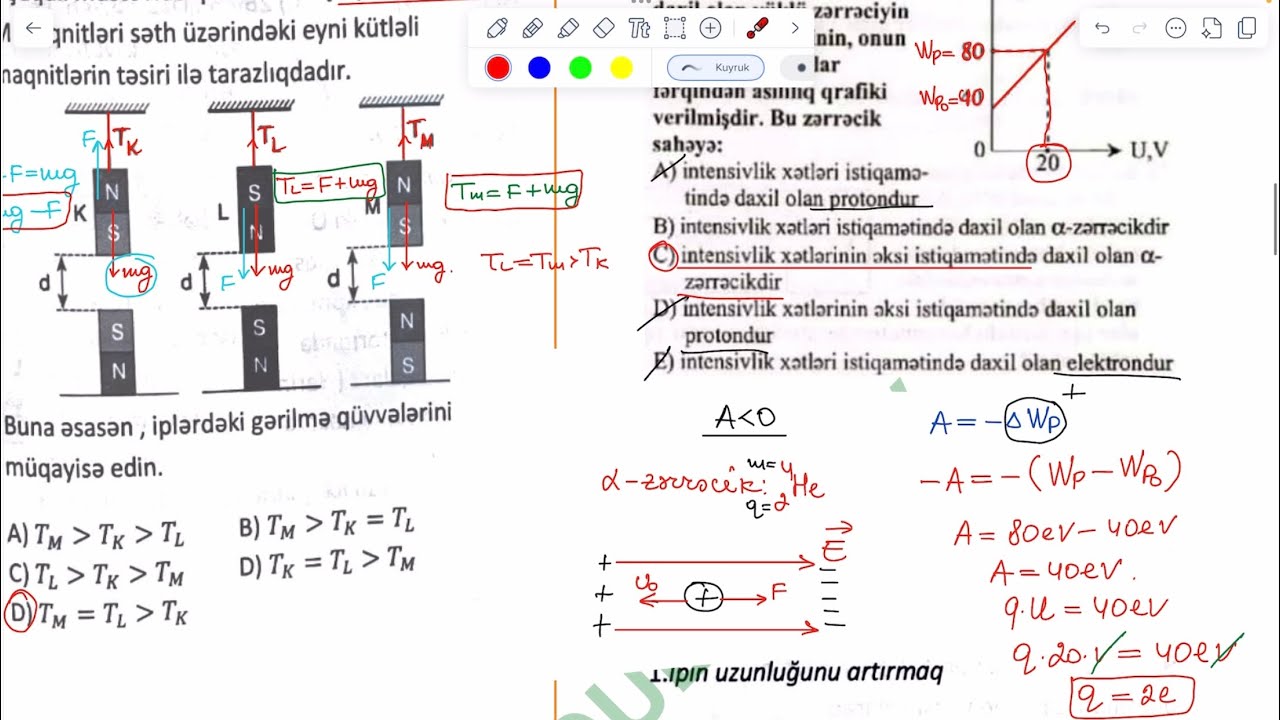 qnitləri səth üzərindəki eyni kütləli
naqnitlərin təsiri ilə tarazlıqdadır.
F T_K T_L T_M
F=mg N S T_L=F+mg N T_m=F+mg
mg-F K S L N M S
mg F mg F mg. T_L=T_m>T_K
d d d
S S N
N N S
Buna əsasən , iplərdəki gərilmə qüvvələrini
müqayisə edin.
A) T_M > T_K > T_L B) T_M > T_K = T_L
C) T_L > T_K > T_M D) T_K = T_L > T_M
D) T_M = T_L > T_K
Tt Kuyruk
zərrəciyin
nin, onun
lar
fərqindən asılılıq qrafiki
verilmişdir. Bu zərrəcik
sahəyə:
Wp= 80
Wp₀=40 40
0 20 U,V
A) intensivlik xətləri istiqamə-
tində daxil olan protondur
B) intensivlik xətləri istiqamətində daxil olan α-zərrəcikdir
C) intensivlik xətlərinin əksi istiqamətində daxil olan α-
zərrəcikdir
D) intensivlik xətlərinin əksi istiqamətində daxil olan
protondur
E) intensivlik xətləri istiqamətində daxil olan elektrondur
+
A<0
m=4
α-zərrəcik: He
q=2
E
+ –
+ υ₀ + F –
+ –
A = -ΔWp
-A = -(Wp-Wp₀)
A = 80eV-40eV
A = 40eV.
q.U = 40eV
q.20.V = 40eV
q = 2e
1.İpin uzunluğunu artırmaq